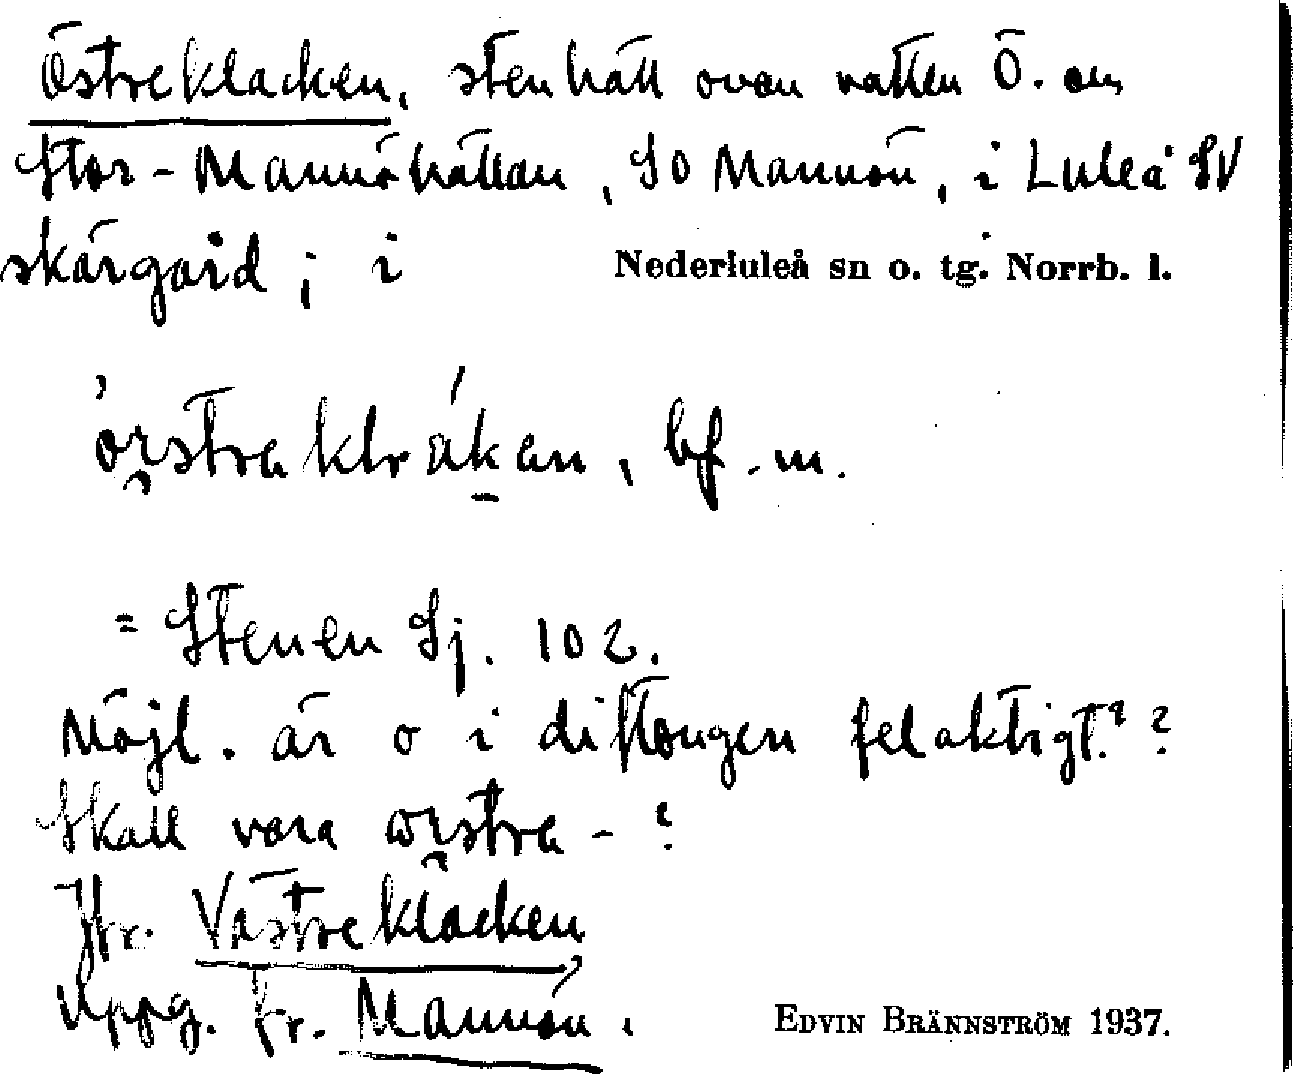 Östreklacken, stenhäll ovan vatten Ö. om
Stor-Mannöhällan, SO Mannön, i Luleå SV
skärgård; i Nederluleå sn o. tg. Norrb. l.
bf. m.
= Stenen Sj. 102.
Möjl. är o i diftongen felaktigt??
Skall vara -?
Jfr. Västreklacken
Uppg. fr. Mannön.
EDVIN BRÄNNSTRÖM 1937.